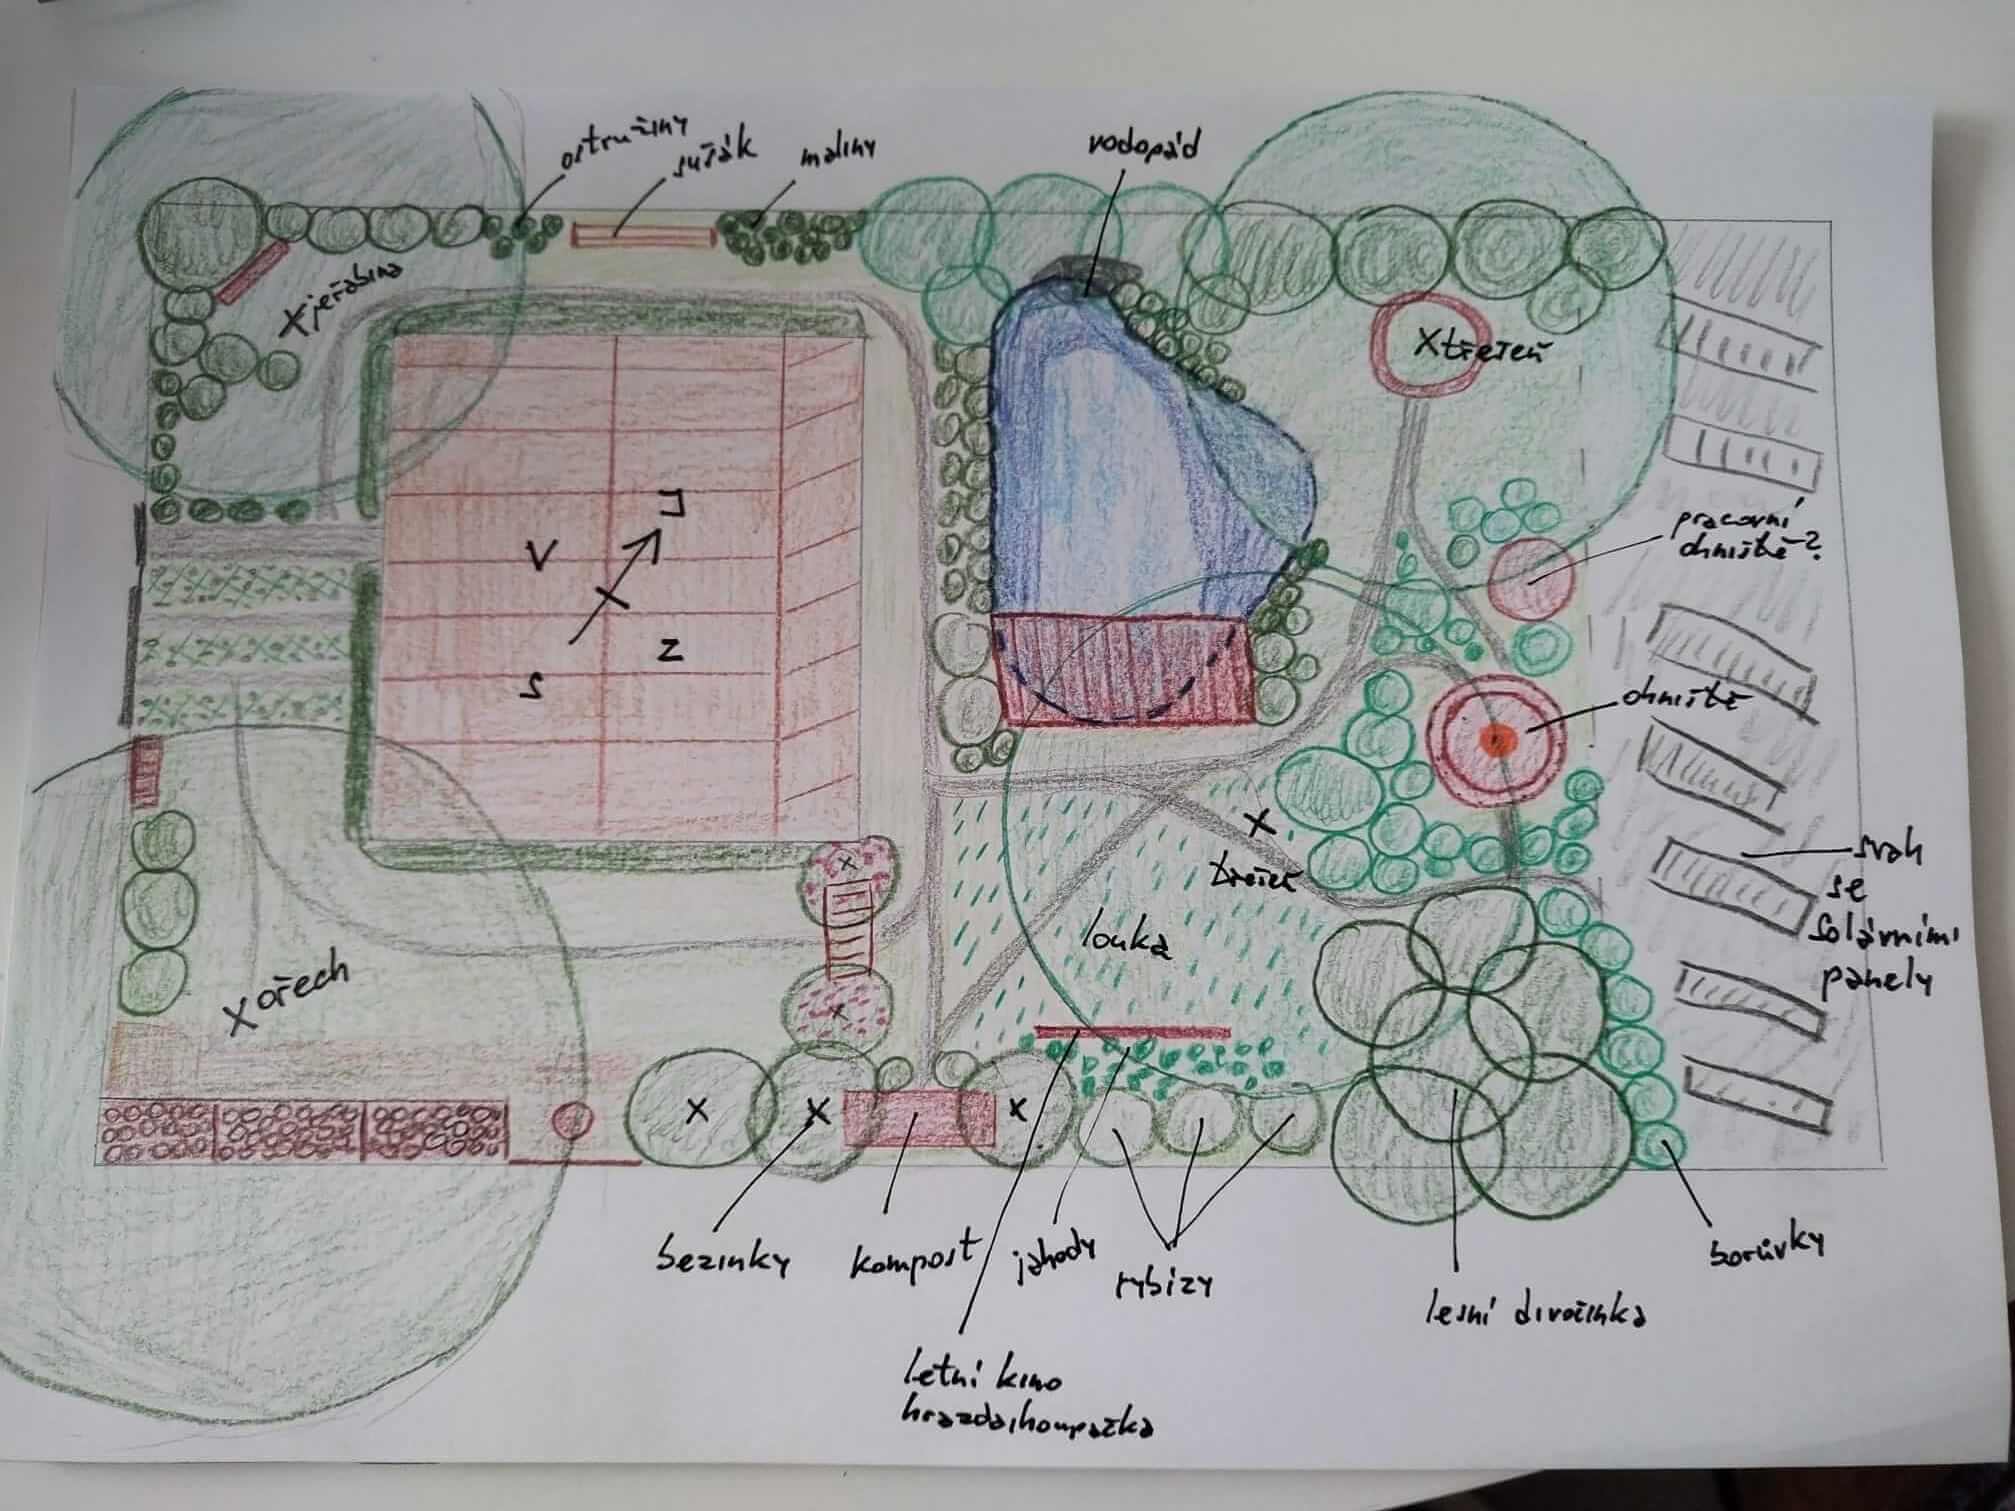 ostružiny
sušák
maliny
vodopád
X jeřabina
X třešeň
J
V
pracovní
ohniště?
S
Z
ohniště
X
třešeň
svah
se
solárními
panely
louka
X ořech
X
X
X
X
X
bezinky
kompost
jahody
rybízy
borůvky
lesní divočinka
letní kino
hrazda/houpačka